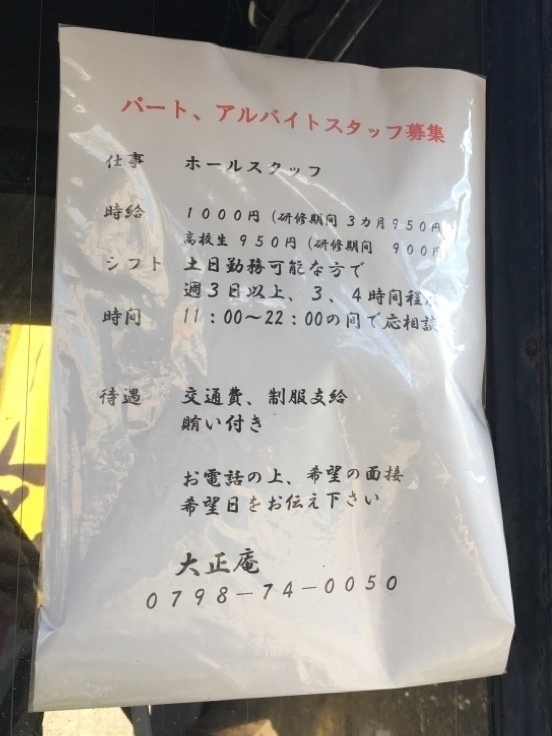 パート、アルバイトスタッフ募集
仕事 ホールスタッフ
時給 1000円（研修期間 3カ月950円
高校生 950円（研修期間 900円
シフト 土日勤務可能な方で
週3日以上、3、4時間程度
時間 11：00〜22：00の間で応相談
待遇 交通費、制服支給
賄い付き
お電話の上、希望の面接
希望日をお伝え下さい
大正庵
0798－74－0050